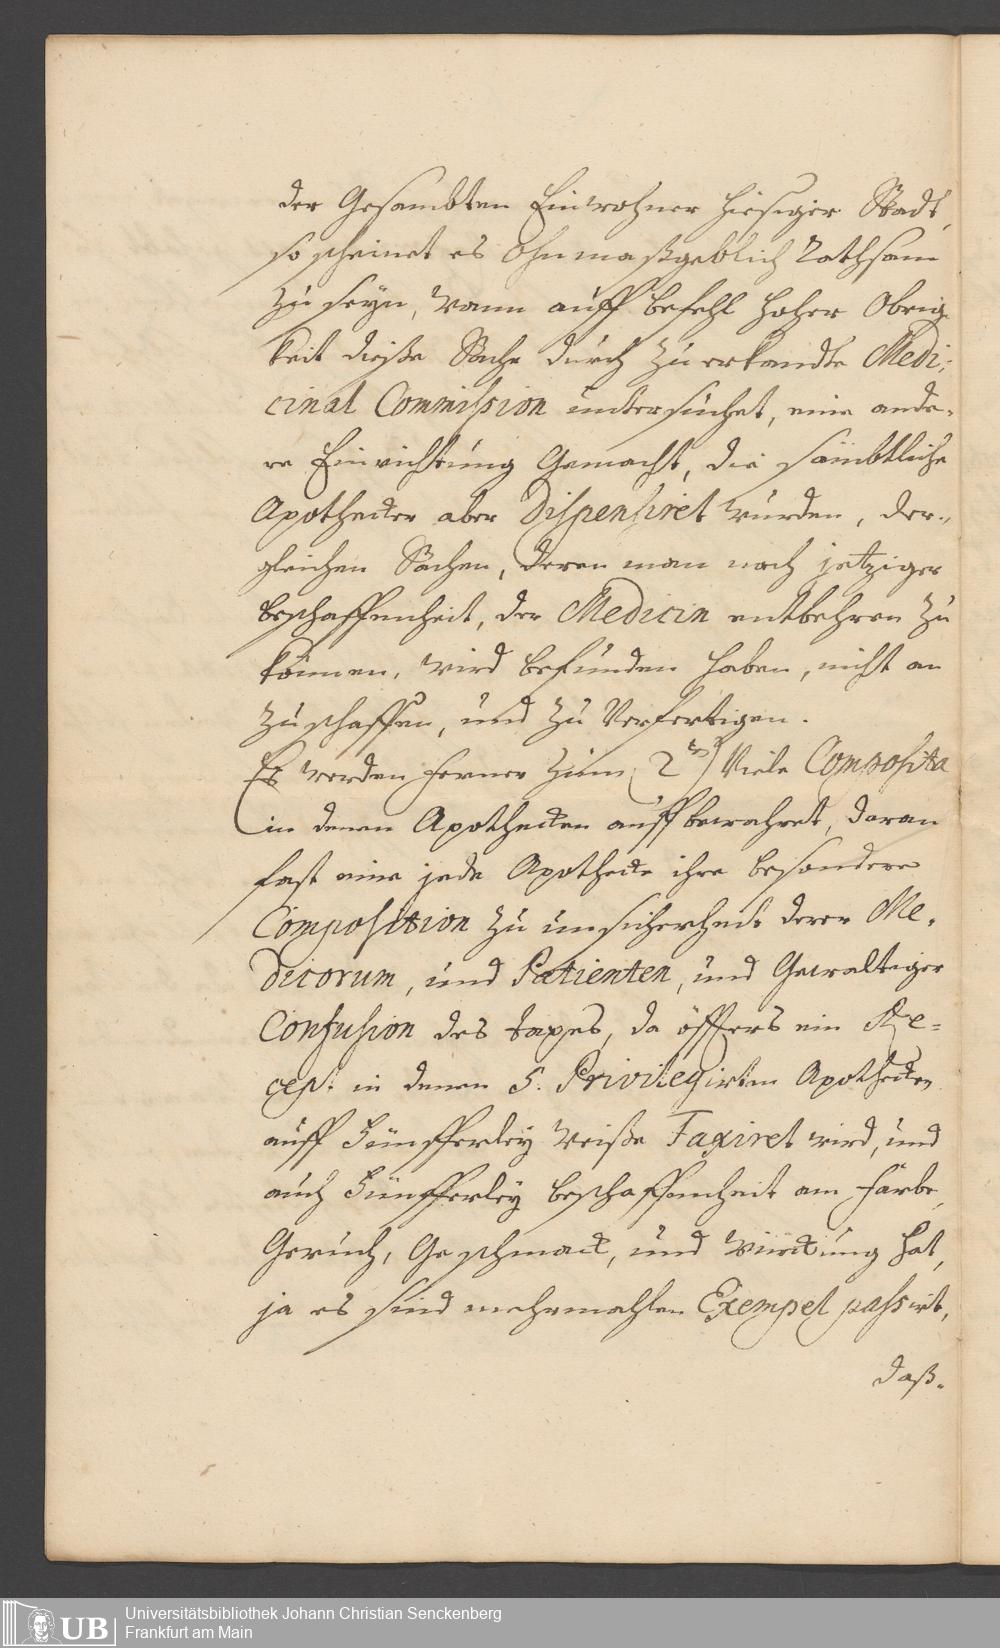 der Gesambten Einwohner hiesiger Stadt,
so scheinet es ohnmaßgeblich Rathsam
zu seyn, wann auff befehl hoher Obrig-
keit dieße Sache durch zu erkandte Medi-
cinal Commission untersuchet, eine ande-
re Einrichtung Gemacht, die sämbtliche
Apothecker aber Dispensiret würden, der-
gleichen Sachen, deren man nach jetziger
beschaffenheit, der Medicin entbehren zu
können, wird befunden haben, nicht an
zuschaffen, und zu Verfertigen.
Es werden ferner zum 2ten) Viele Composita
in denen Apothecken auffbewahret, daran
fast eine jede Apothecke ihre besondere
Composition zu unsicherheit derer Me-
dicorum, und Patienten, und Gewaltiger
Confusion des taxes, da öffters ein Re-
cept in denen 5. Privilegirten Apothecken
auff Fünfferley Weiße Taxiret wird, und
auch Fünfferley beschaffenheit am Farbe,
Geruch, Geschmack, und Würckung hat,
ja es sind mehrmahlen Exempel passirt,
daß-
UB Universitätsbibliothek Johann Christian Senckenberg
Frankfurt am Main